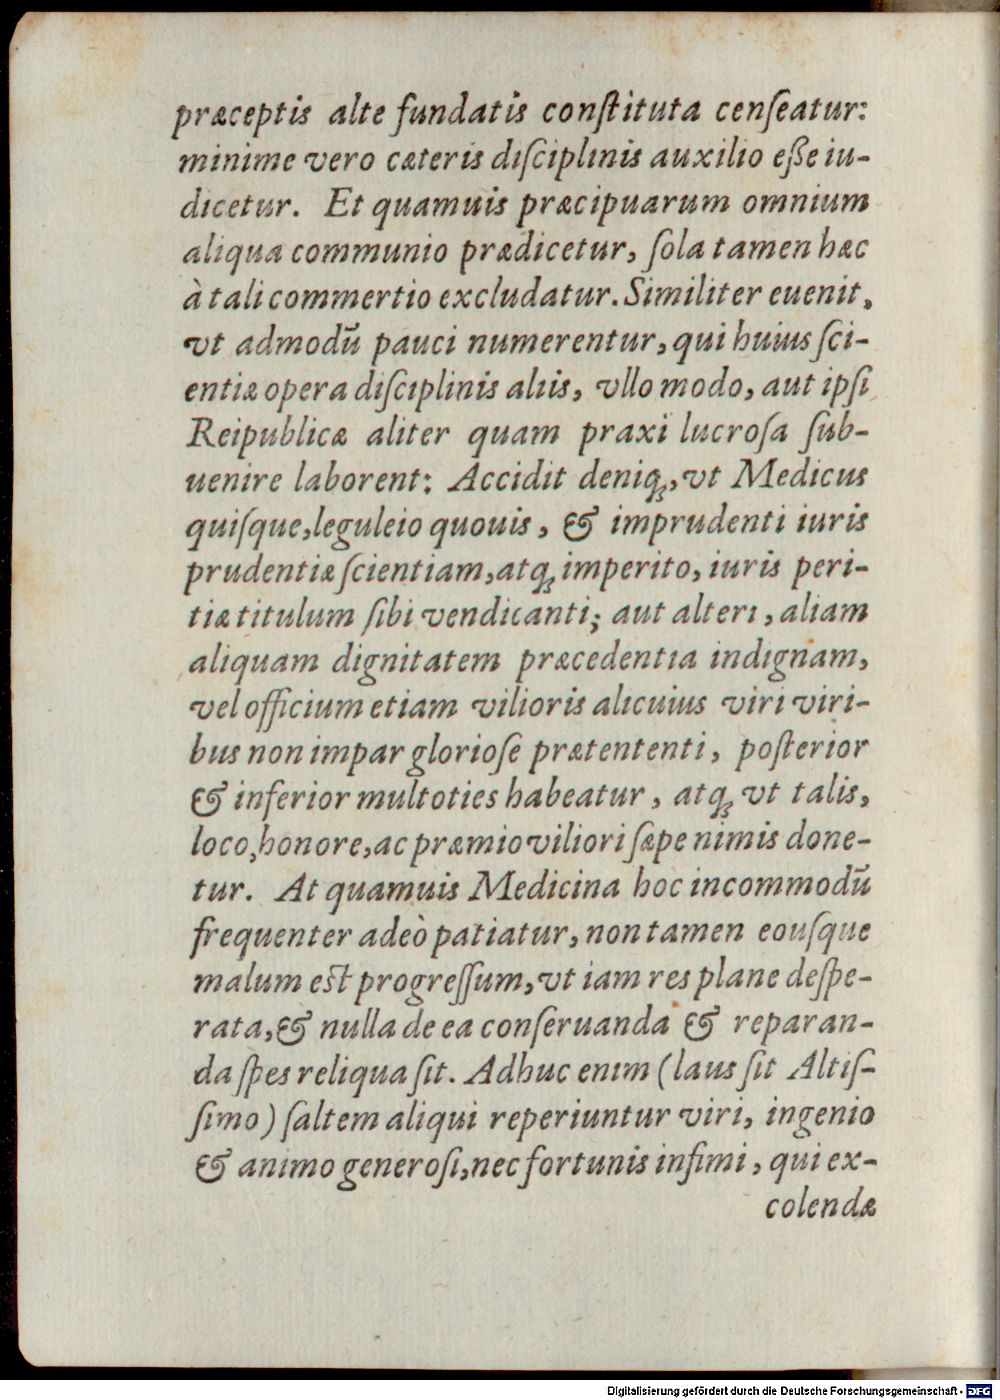 præceptis alte fundatis conſtituta cenſeatur:
minime vero cæteris diſciplinis auxilio eße iu-
dicetur. Et quamuis præcipuarum omnium
aliqua communio prædicetur, ſola tamen hæc
à tali commertio excludatur. Similiter euenit,
vt admodũ pauci numerentur, qui huius ſci-
entiæ opera diſciplinis aliis, vllo modo, aut ipſi
Reipublicæ aliter quam praxi lucroſa ſub-
uenire laborent: Accidit deniqꝫ, vt Medicus
quiſque, leguleio quouis, & imprudenti iuris
prudentiæ ſcientiam, atqꝫ imperito, iuris peri-
tiæ titulum ſibi vendicanti; aut alteri, aliam
aliquam dignitatem præcedentia indignam,
vel officium etiam vilioris alicuius viri viri-
bus non impar glorioſe prætententi, poſterior
& inferior multoties habeatur, atqꝫ vt talis,
loco, honore, ac præmio viliori ſæpe nimis done-
tur. At quamuis Medicina hoc incommodũ
frequenter adeò patiatur, non tamen eouſque
malum eſt progreſſum, vt iam res plane deſpe-
rata, & nulla de ea conſeruanda & reparan-
da ſpes reliqua ſit. Adhuc enim (laus ſit Altiſ-
ſimo) ſaltem aliqui reperiuntur viri, ingenio
& animo generoſi, nec fortunis infimi, qui ex-
colendæ
Digitalisierung gefördert durch die Deutsche Forschungsgemeinschaft - DFG